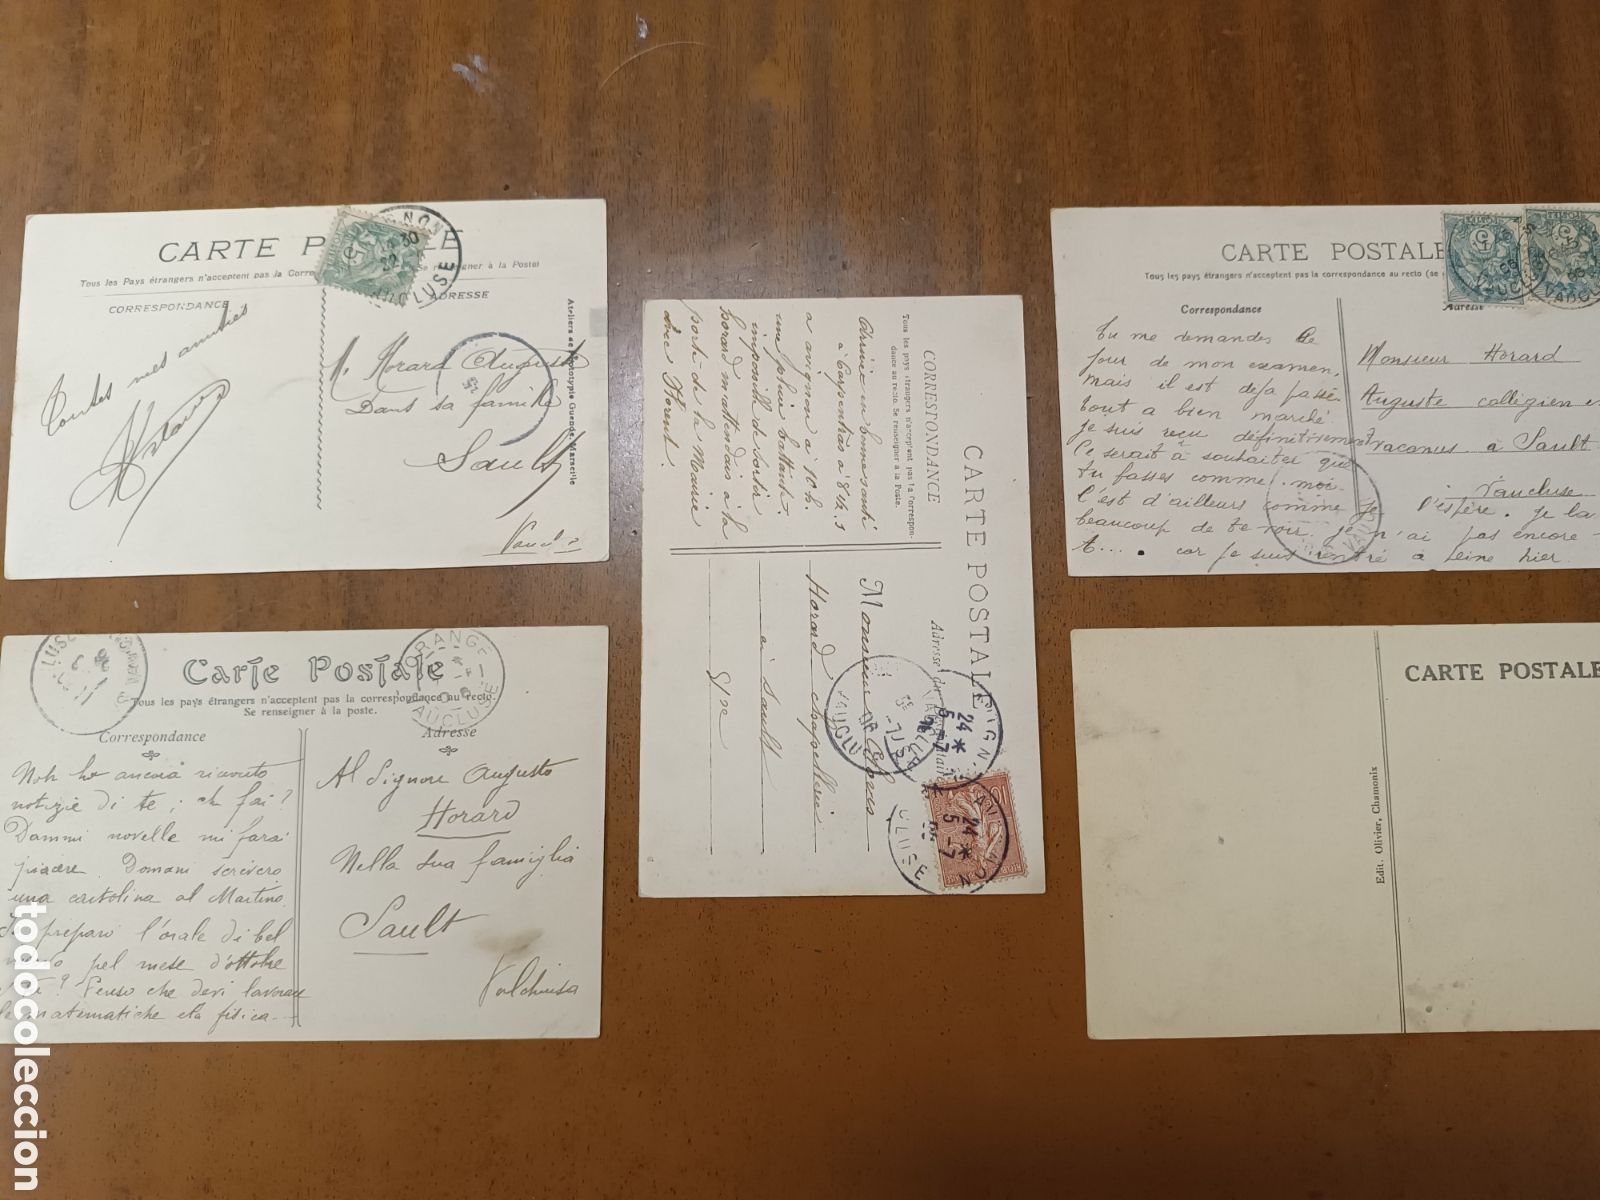 CARTE POSTALE
Tous les Pays étrangers n'acceptent pas la Corre
Se renseigner à la Poste)
CORRESPONDANCE
ADRESSE
Toutes mes amitiés
M. Horard Auguste
Dans sa famille
Sault
Ateliers de Phototypie Guende, Marseille
VAUCLUSE
Carte Postale
Tous les pays étrangers n'acceptent pas la correspondance au recto.
Se renseigner à la poste.
Correspondance
Adresse
ORANGE
VAUCLUSE
Non ho ancora ricevuto
notizie di te ; che fai ?
Dammi novelle mi farai
piacere. Domani scrivero
una cartolina al Martino.
preparo l'orale di bel
nuovo pel mese d'ottobre
? Penso che devi lavorare
le matematiche e la fisica.
Al Signore Augusto
Horard
Nella sua famiglia
Sault
Valchiusa
CARTE POSTALE
CORRESPONDANCE
Tous les pays étrangers n'acceptent pas la correspon-
dance au recto. Se renseigner à la Poste.
Adresse du destinataire
Arrivé en bonne santé
à Carpentras à 8h.
a avignon à 10h.
une pluie battante.
impossible de sortir
Horard m'attendais à la
porte de la Mairie
Monsieur Elzears
Horard chapellerie
a Sault
24 *
5 - 7
CARTE POSTALE
Tous les pays étrangers n'acceptent pas la correspondance au recto (se
Correspondance
Adresse
Tu me demandes le
jour de mon examen,
mais il est deja passé.
Tout a bien marché.
Je suis reçu définitivement
Ce serait à souhaiter que
tu fasses comme moi
C'est d'ailleurs comme je l'espère. Je la
beaucoup de te voir. je n'ai pas encore
t.... car je suis rentré à peine hier.
Monsieur Horard
Auguste collégien en
vacances à Sault
Vaucluse
CARTE POSTALE
Edit. Olivier, Chamonix
todocoleccion